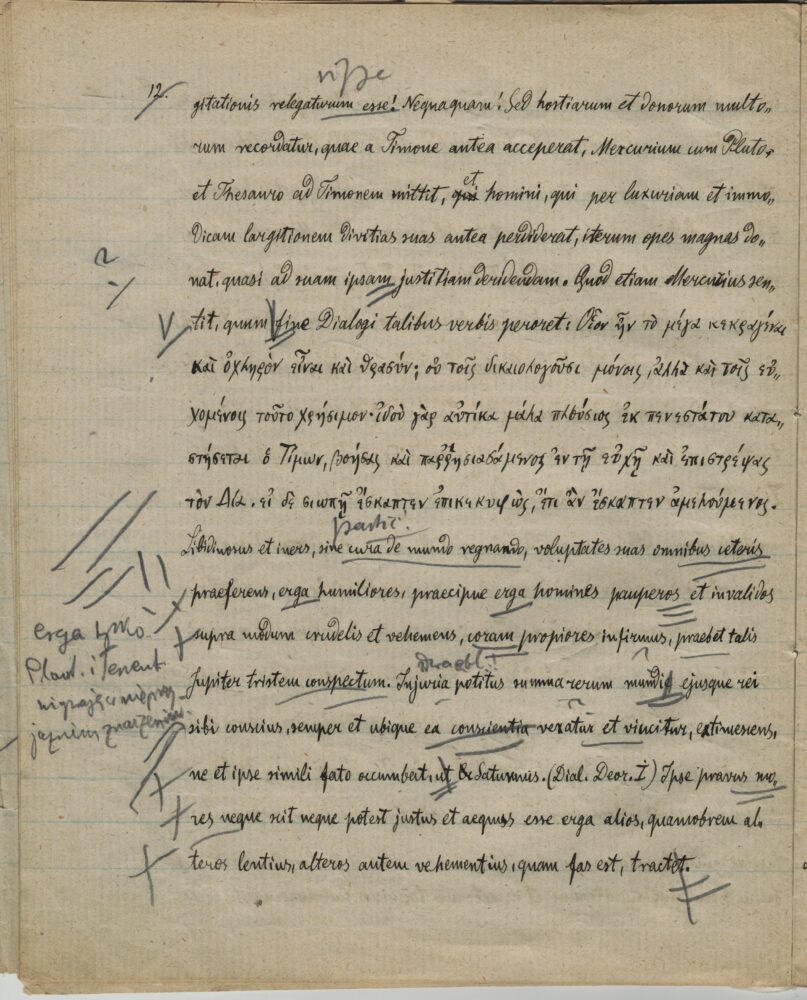 12.
gitationis relegaturum esse! Nequaquam! Sed hostiarum et donorum multo„
rum recordatur, quae a Timone antea acceperat, Mercurium cum Pluto„
et Thesauro ad Timonem mittit, et homini, qui per luxuriam et immo„
dicam largitionem divitias suas antea perdiderat, iterum opes magnas do„
nat, quasi ad suam ipsam justitiam deridendam. Quod etiam Mercurius sen„
tit, quum fine Dialogi talibus verbis peroret: Οἷον ἦν τὸ μέγα κεκραγέναι
καὶ ὀχληρὸν εἶναι καὶ θρασύν; οὐ τοῖς δικαιολογοῦσι μόνοις, ἀλλὰ καὶ τοῖς εὐ„
χομένοις τοῦτο χρήσιμον· ἰδοὺ γὰρ αὐτίκα μάλα πλούσιος ἐκ πενεστάτου κατα„
στήσεται ὁ Τίμων, βοήσας καὶ παρρησιασάμενος ἐν τῇ εὐχῇ καὶ ἐπιστρέψας
τὸν Δία. εἰ δὲ σιωπῇ ἔσκαπτεν ἐπικεκυφὼς, ἔτι ἂν ἔσκαπτεν ἀμελούμενος.
partic.
Libidinosus et iners, sine cura de mundo regnando, voluptates suas omnibus ceteris
praeferens, erga humiliores, praecipue erga homines pauperos et invalidos
supra modum crudelis et vehemens, coram propiores infirmus, praebet talis
Jupiter tristem conspectum. Injuria potitus summa rerum mundi ejusque rei
sibi conscius, semper et ubique ea conscientia vexatur et vincitur, extimescens,
ne et ipse simili fato occumbat, ut Saturnus. (Dial. Deor. I) Ipse pravus mo„
res neque scit neque potest justus et aequus esse erga alios, quamobrem al„
teros lentius, alteros autem vehementius, quam fas est, tractet.
erga tylko
Plaut. i Terent.